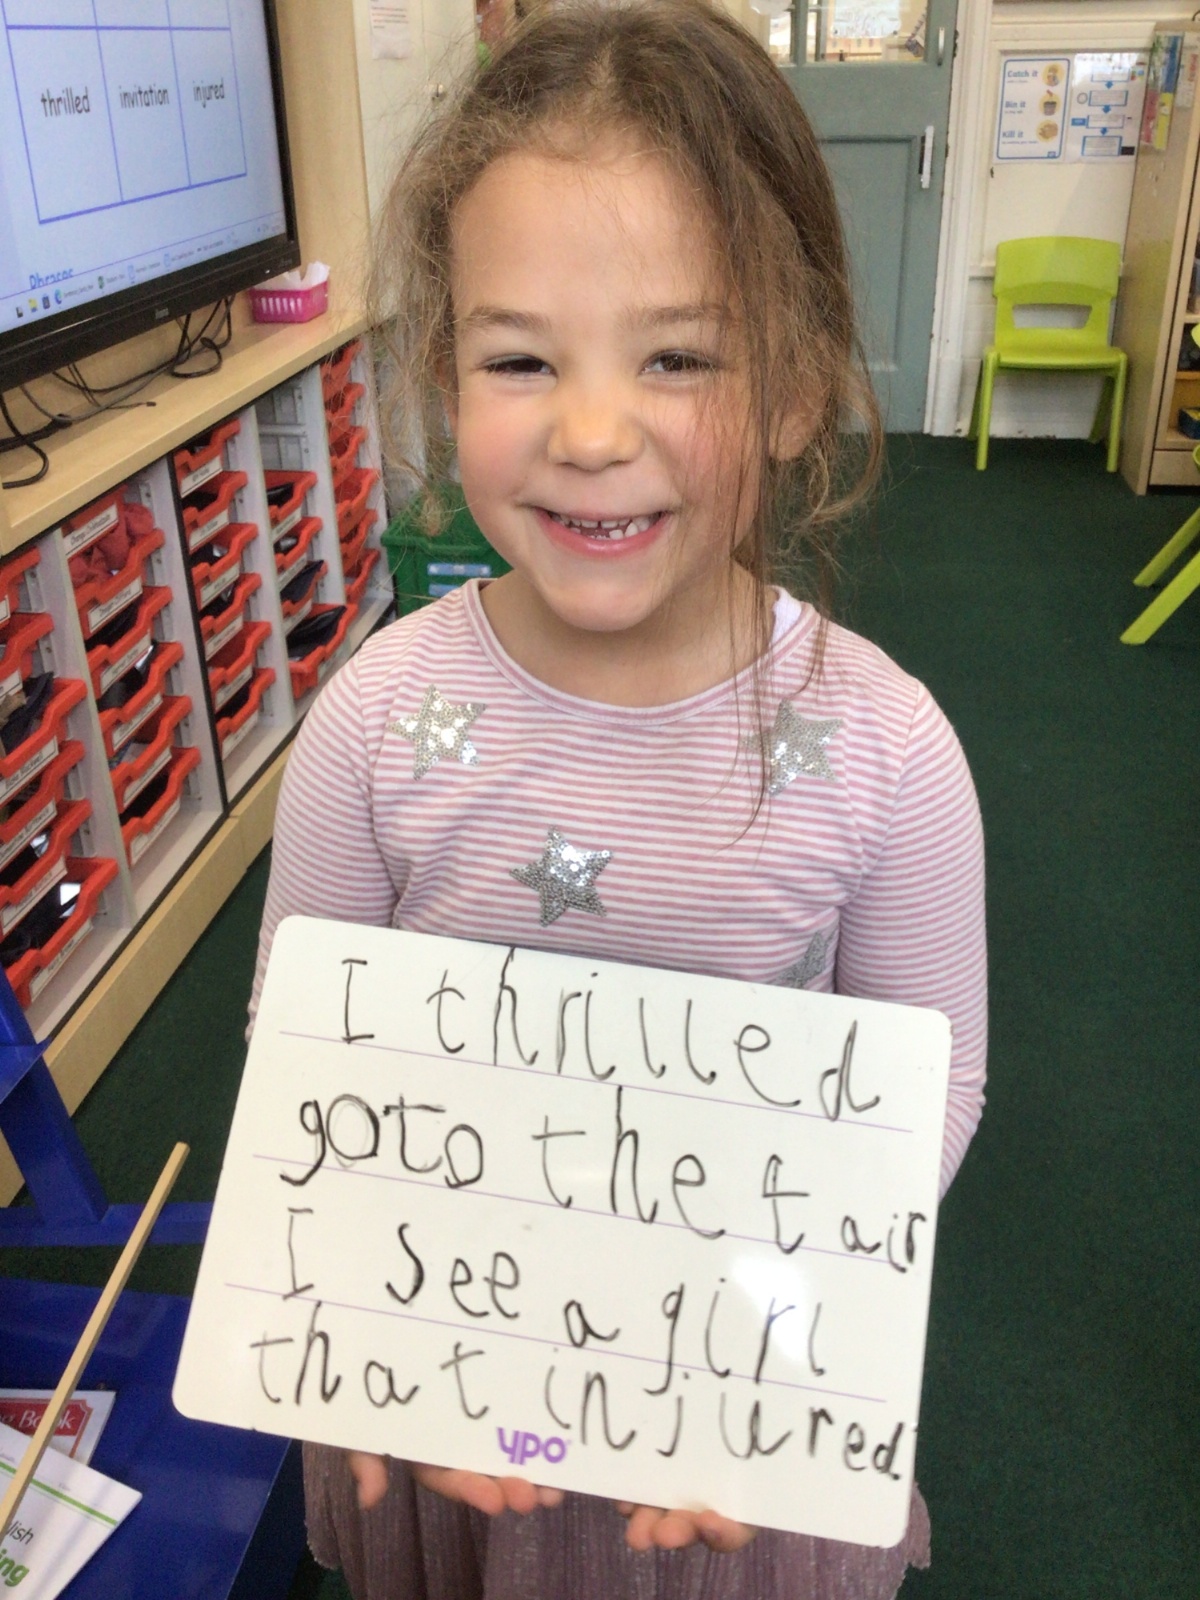 thrilled invitation injured
Phrases
Catch it
Bin it
Kill it
I thrilled
goto the tair
I see a girl
that injured
ypo
Book
lish
ing